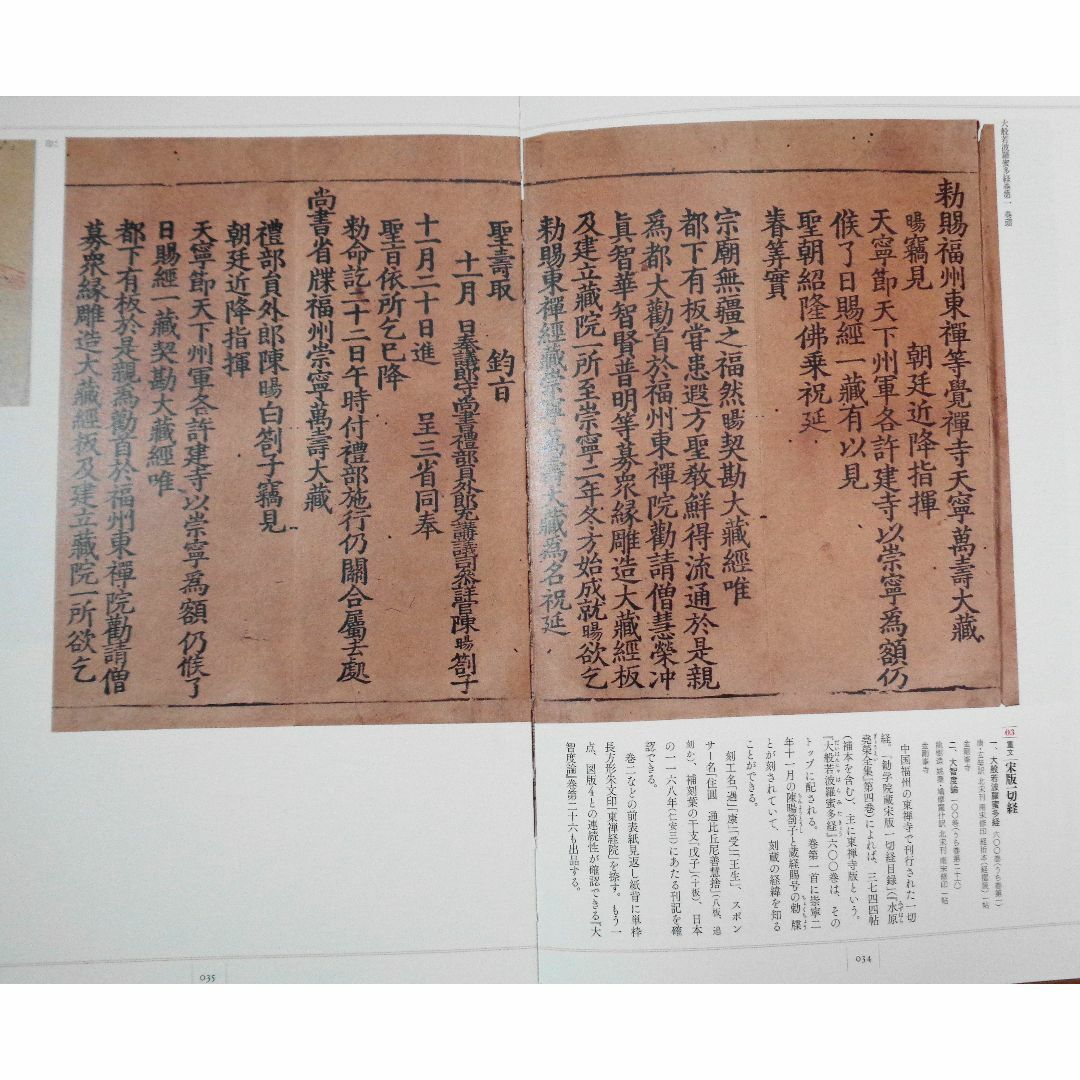 大般若波羅蜜多経巻第一 巻頭
勑賜福州東禪等覺禪寺天寧萬壽大藏
暘竊見　朝廷近降指揮
天寧節天下州軍各許建寺以崇寧爲額仍
候了日賜經一藏有以見
聖朝紹隆佛乗祝延
睿筭實
宗廟無疆之福然暘契勘大藏經唯
都下有板甞患遐方聖教鮮得流通於是親
爲都大勸首於福州東禪院勸請僧慧榮冲
眞智華智賢普明等募衆縁雕造大藏經板
及建立藏院一所至崇寧二年冬方始成就暘欲乞
勑賜東禪經藏崇寧萬壽大藏爲名祝延
聖壽取　鈞旨
十一月　日奉議郎守尚書禮部員外郎充講議司叅詳官陳暘劄子
十一月二十日進　呈三省同奉
聖旨依所乞已降
勑命訖二十二日午時付禮部施行仍關合屬去處
尚書省牒福州崇寧萬壽大藏
禮部員外郎陳暘白劄子竊見
朝廷近降指揮
天寧節天下州軍各許建寺以崇寧爲額仍候了
日賜經一藏契勘大藏經唯
都下有板於是親爲勸首於福州東禪院勸請僧
募衆縁雕造大藏經板及建立藏院一所欲乞
03 重文 宋版一切経
一、大般若波羅蜜多経 六〇〇巻(うち巻第一)
唐・玄奘訳 北宋刊 南宋修印 経折本(経摺装) 一帖
金剛峯寺
二、大智度論 一〇〇巻(うち巻第二十六)
龍樹造 姚秦・鳩摩羅什訳 北宋刊 南宋修印 一帖
金剛峯寺
中国福州の東禅寺で刊行された一切
経。『勧学院蔵宋版一切経目録』(『水原
堯榮全集』第四巻)によれば、三七四四帖
(補本を含む)、主に東禅寺版という。
『大般若波羅蜜多経』六〇〇巻は、その
トップに配される。巻第一首に崇寧二
年十一月の陳暘劄子と蔵経賜号の勅牒
とが刻されていて、刻蔵の経緯を知る
ことができる。
刻工名「過」「康」「受」「王生」、スポン
サー名「住圓　通比丘尼善慧捨」(八板、追
刻か)、補刻葉の干支「戊子」(十板)、日本
の一一六八年(仁安三)にあたる刊記を確
認できる。
巻二などの前表紙見返し紙背に単枠
長方形朱文印「東禅経院」を捺す。もう一
点、図版4との連続性が確認できる『大
智度論』巻第二十六も出品する。
035
034